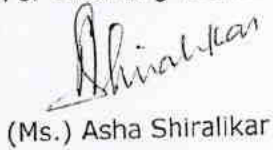 AShiralkar
(Ms.) Asha Shiralikar